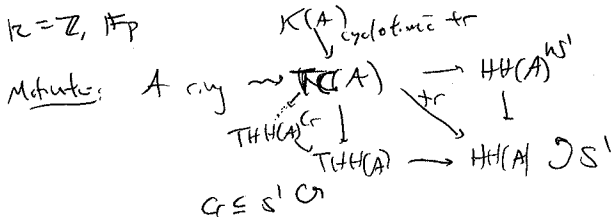 k = ℤ, 𝔽p
K(A) cyclotomic tr
Motivation: A ring ⇝ TC(A) → HH(A)^{hS¹}
tr
THH(A)^{Cr}
THH(A) → HH(A) ↺ S¹
Cr ⊆ S¹ ↺